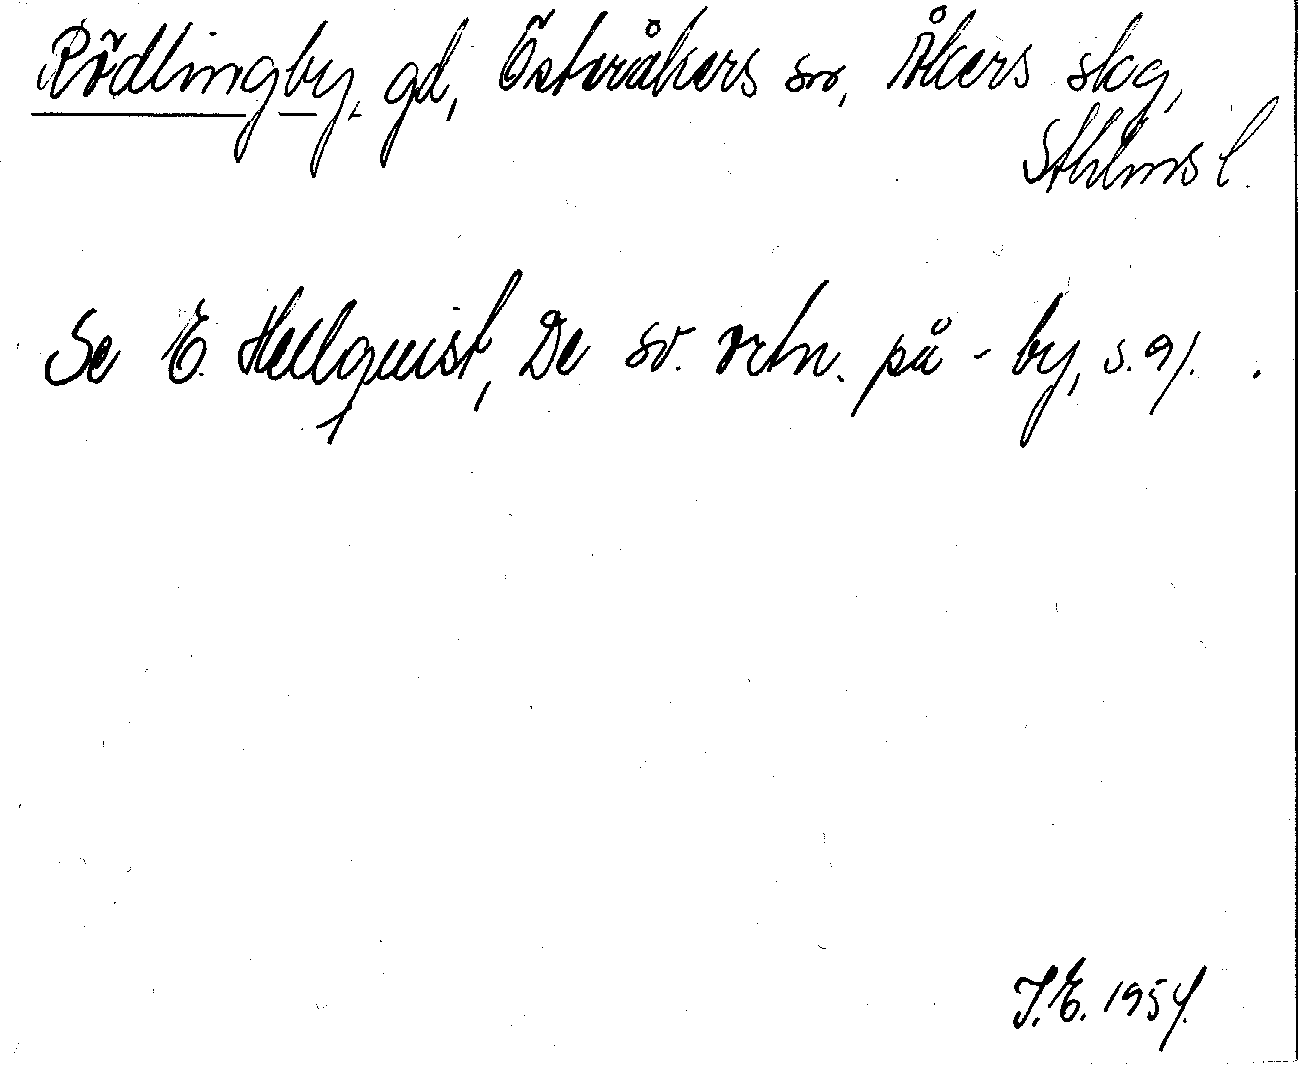 Rödlingby, gd, Österåkers sn, Åkers skg,
Sthlms l.
Se E. Hellquist, De sv. ortn. på -by, s. 91.
J.E. 1954.